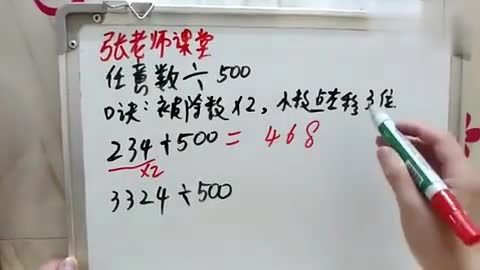 张老师课堂
任意数÷500
口诀：被除数×2，小数点左移3位
234÷500=468
×2
3324÷500